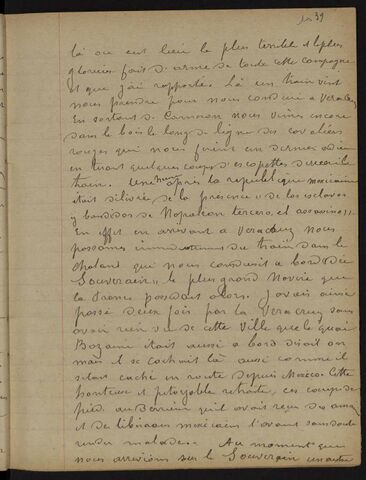 39
là où eut lieu le plus terrible et le plus
glorieux fait d'arme de toute cette campagne
et que j'ai rapporté. Là un train vint
nous prendre pour nous conduire à Veracruz
En sortant de Cameron nous vîmes encore
dans le bois le long de ligne des cavaliers
rouges qui nous firent un dernier adieu
en tirant quelques coups d'escopettes
train. Une heure après la republique mexicaine
était délivrée de la présence « de los esclavos
y bandidos de Napoleon tercero, et assassinos ».
En effet en arrivant à Veracruz nous
passâmes du train dans le
chaland qui nous conduisit à bord du
Souverain, le plus grand Navire que
la France possédait alors. J'avais ainsi
passé deux fois par la Veracruz sans
avoir rien vu de cette ville que le quai
Bazaine était aussi à bord disait on
mais il se cachait là aussi comme il
s'était caché en route depuis Mexico. Cette
honteuse et pitoyable retraite, ces coups de
pied au derrière qu'il avait reçu du
et de libéraux mexicains l'avait sans doute
rendu malade. Au moment que
nous arrivions sur le Souverain un autre